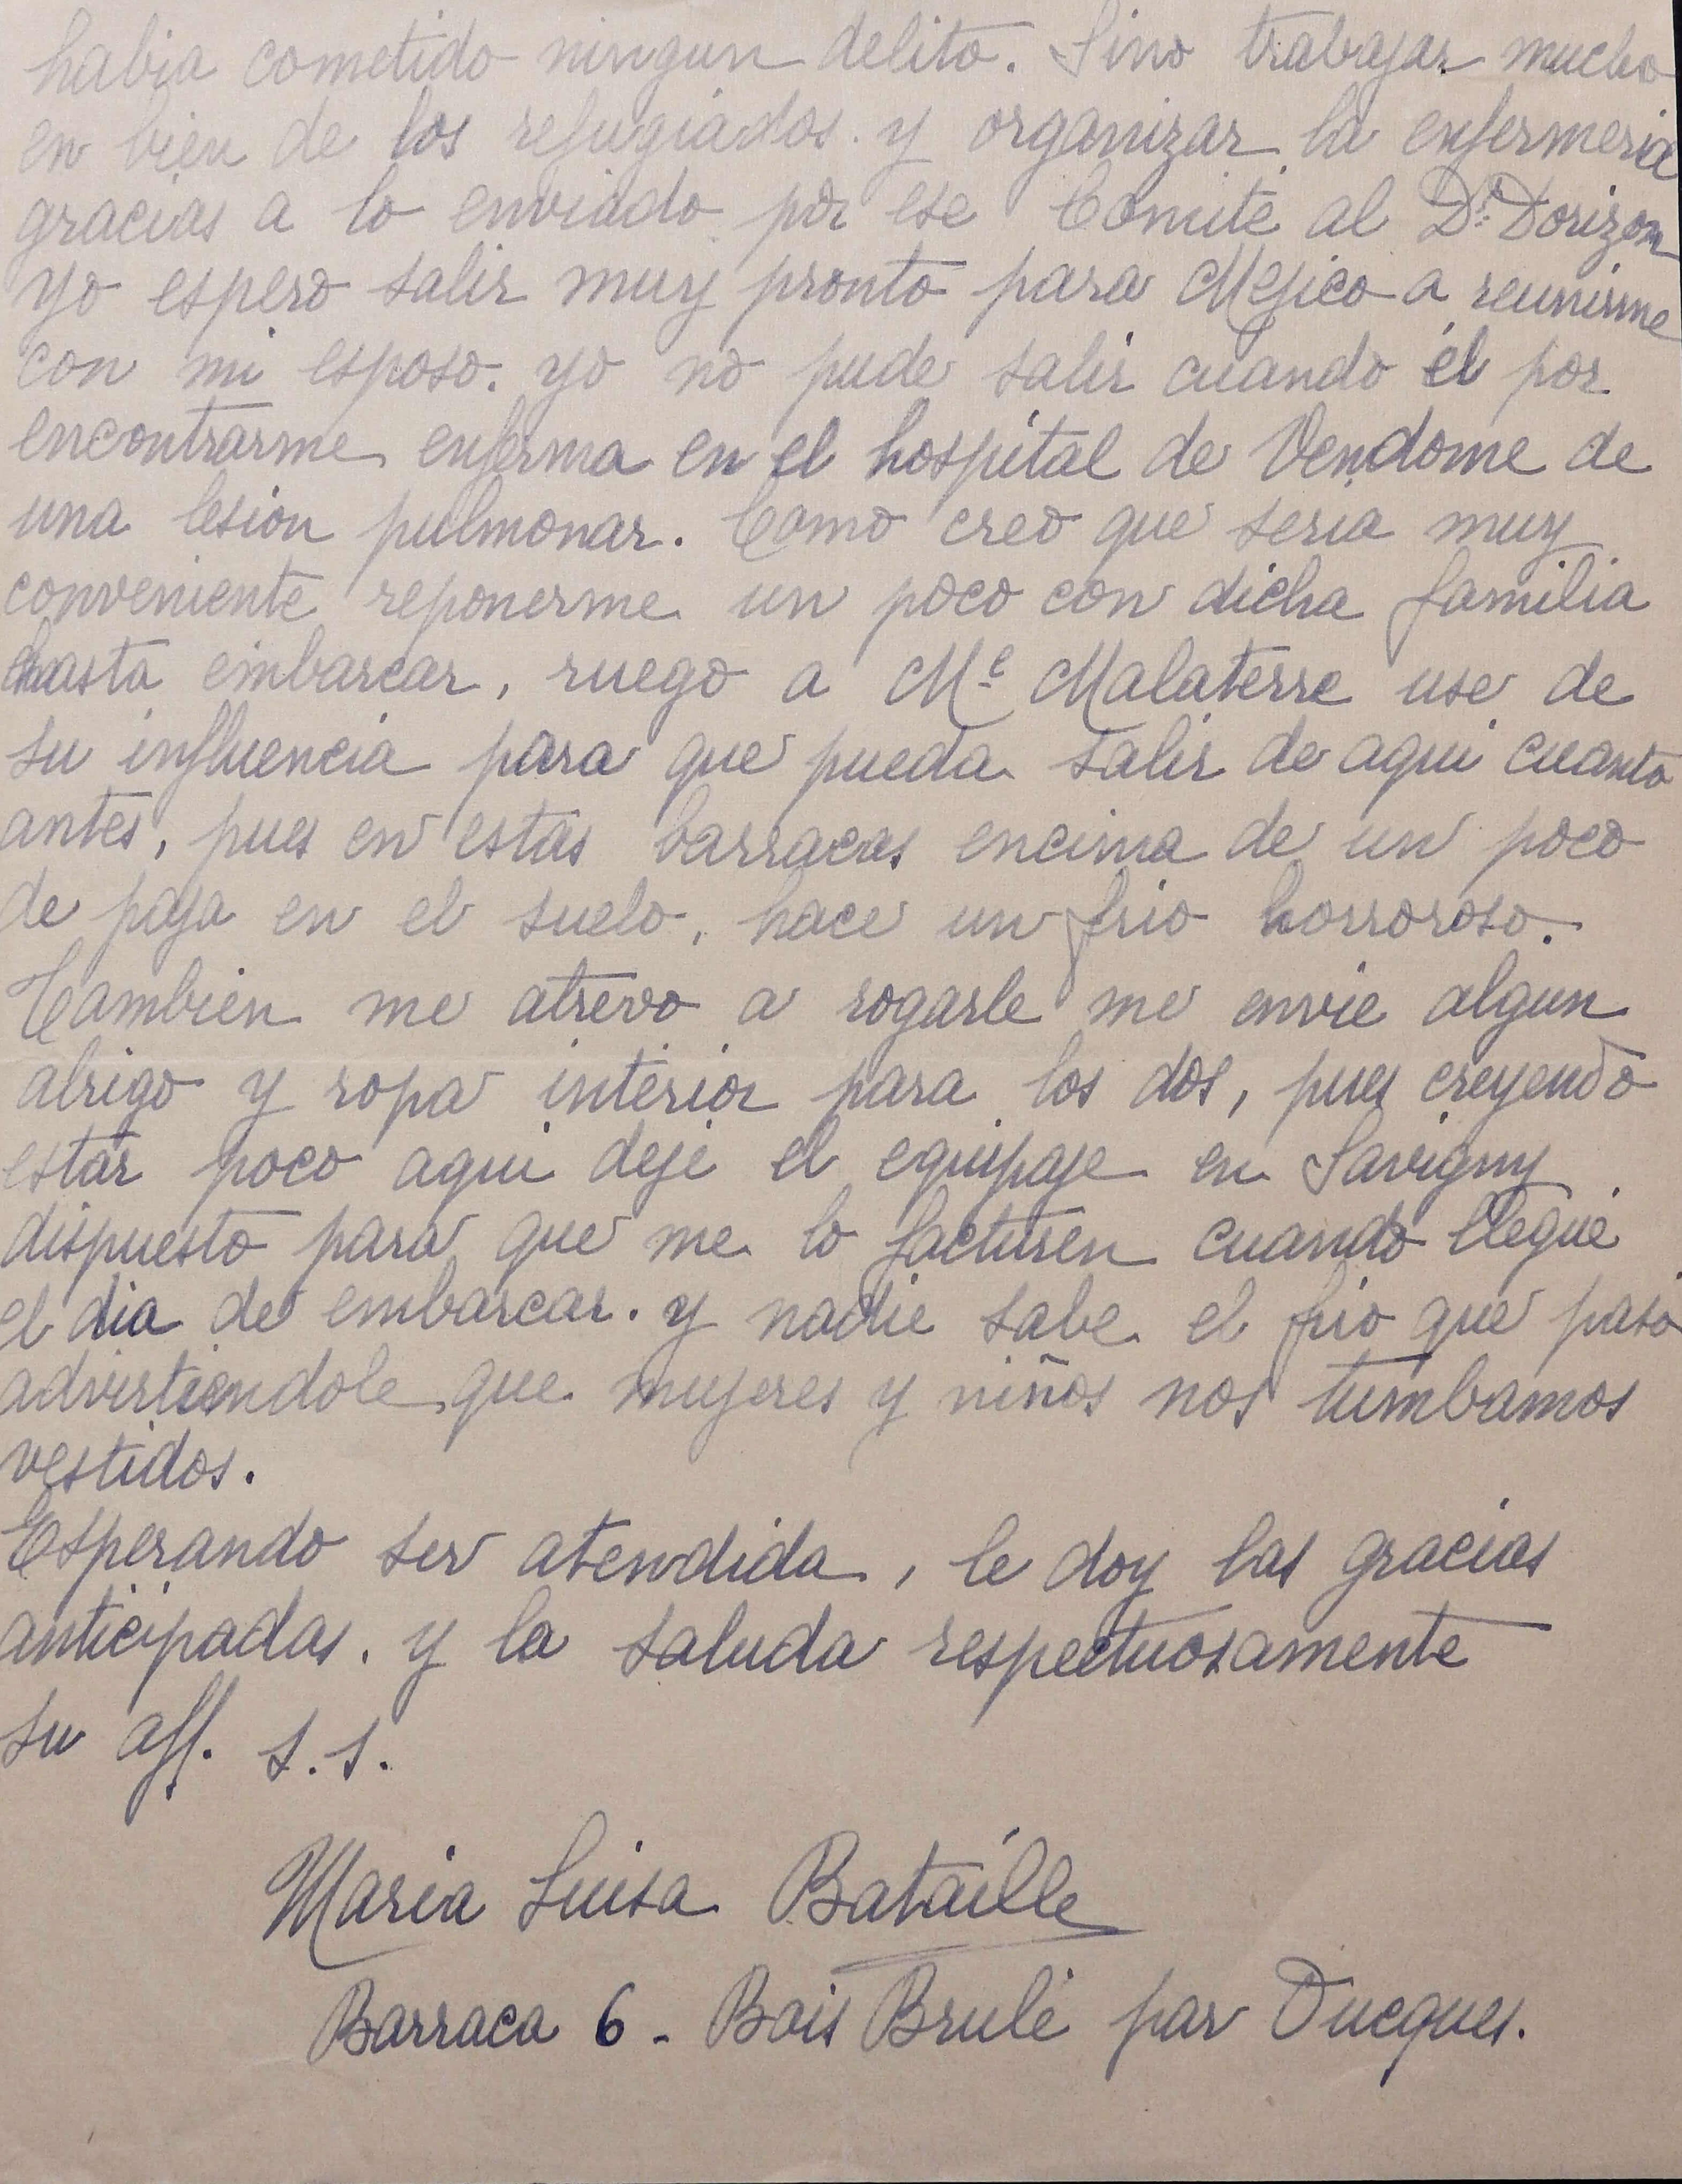 habia cometido ningun delito. Sino trabajar mucho
en bien de los refugiados. y organizar la enfermeria
gracias a lo enviado por ese Comité al Dr. Dorizon
yo espero salir muy pronto para Mejico a reunirme
con mi esposo. yo no pude salir cuando él por
encontrarme enferma en el hospital de Vendome de
una lesión pulmonar. Como creo que seria muy
conveniente reponerme un poco con dicha familia
hasta embarcar, ruego a Me Malaterre use de
su influencia para que pueda salir de aqui cuanto
antes, pues en estas barracas encima de un poco
de paja en el suelo, hace un frio horroroso.
Tambien me atrevo a rogarle me envie algun
abrigo y ropa interior para los dos, pues creyendo
estar poco aqui dejé el equipaje en Savigny
dispuesto para que me lo facturen cuando llegue
el dia de embarcar. y nadie sabe el frio que paso
advirtiendole que mujeres y niños nos tumbamos
vestidos.
Esperando ser atendida, le doy las gracias
anticipadas. y la saluda respectuosamente
su aff. s.s.
Maria Luisa Bataille
Barraca 6 - Bois Brulé par Ducques.